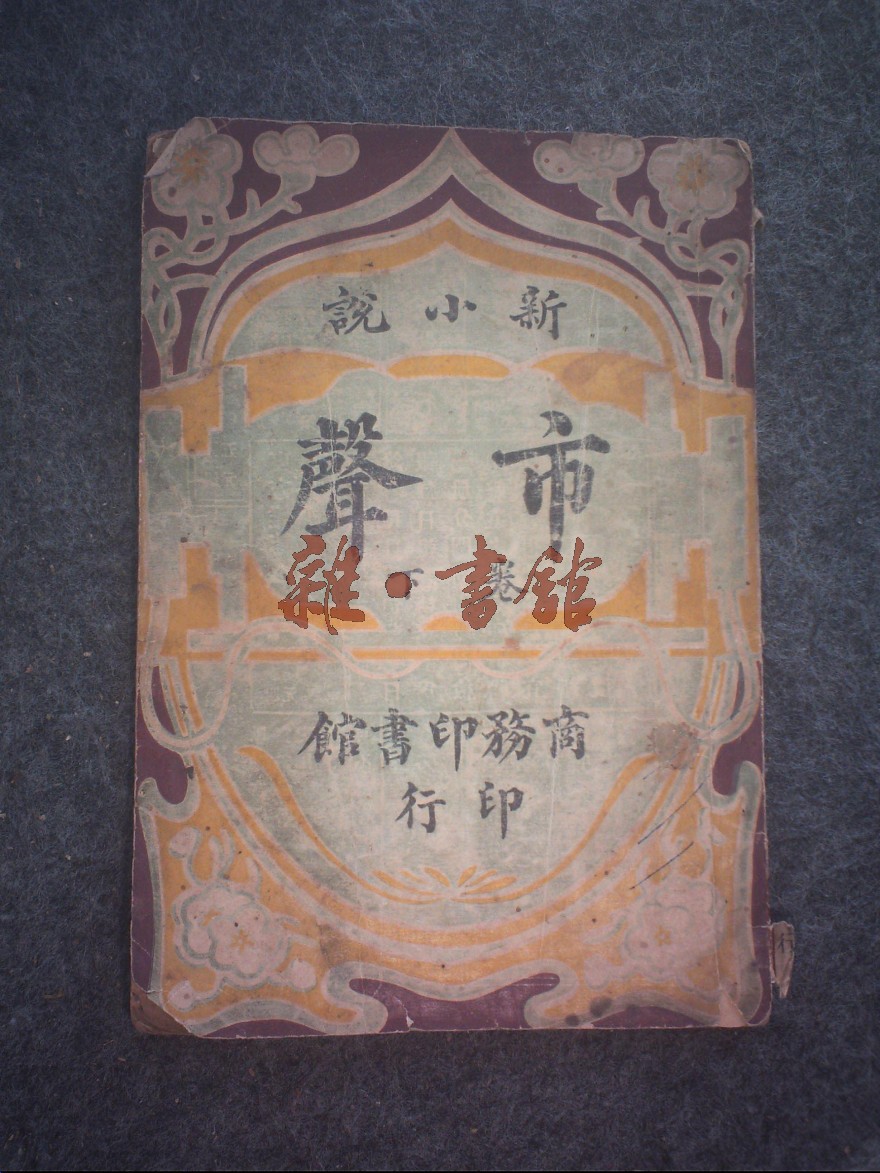 新小說
市聲
卷下
雜·書館
商務印書館
印行
行